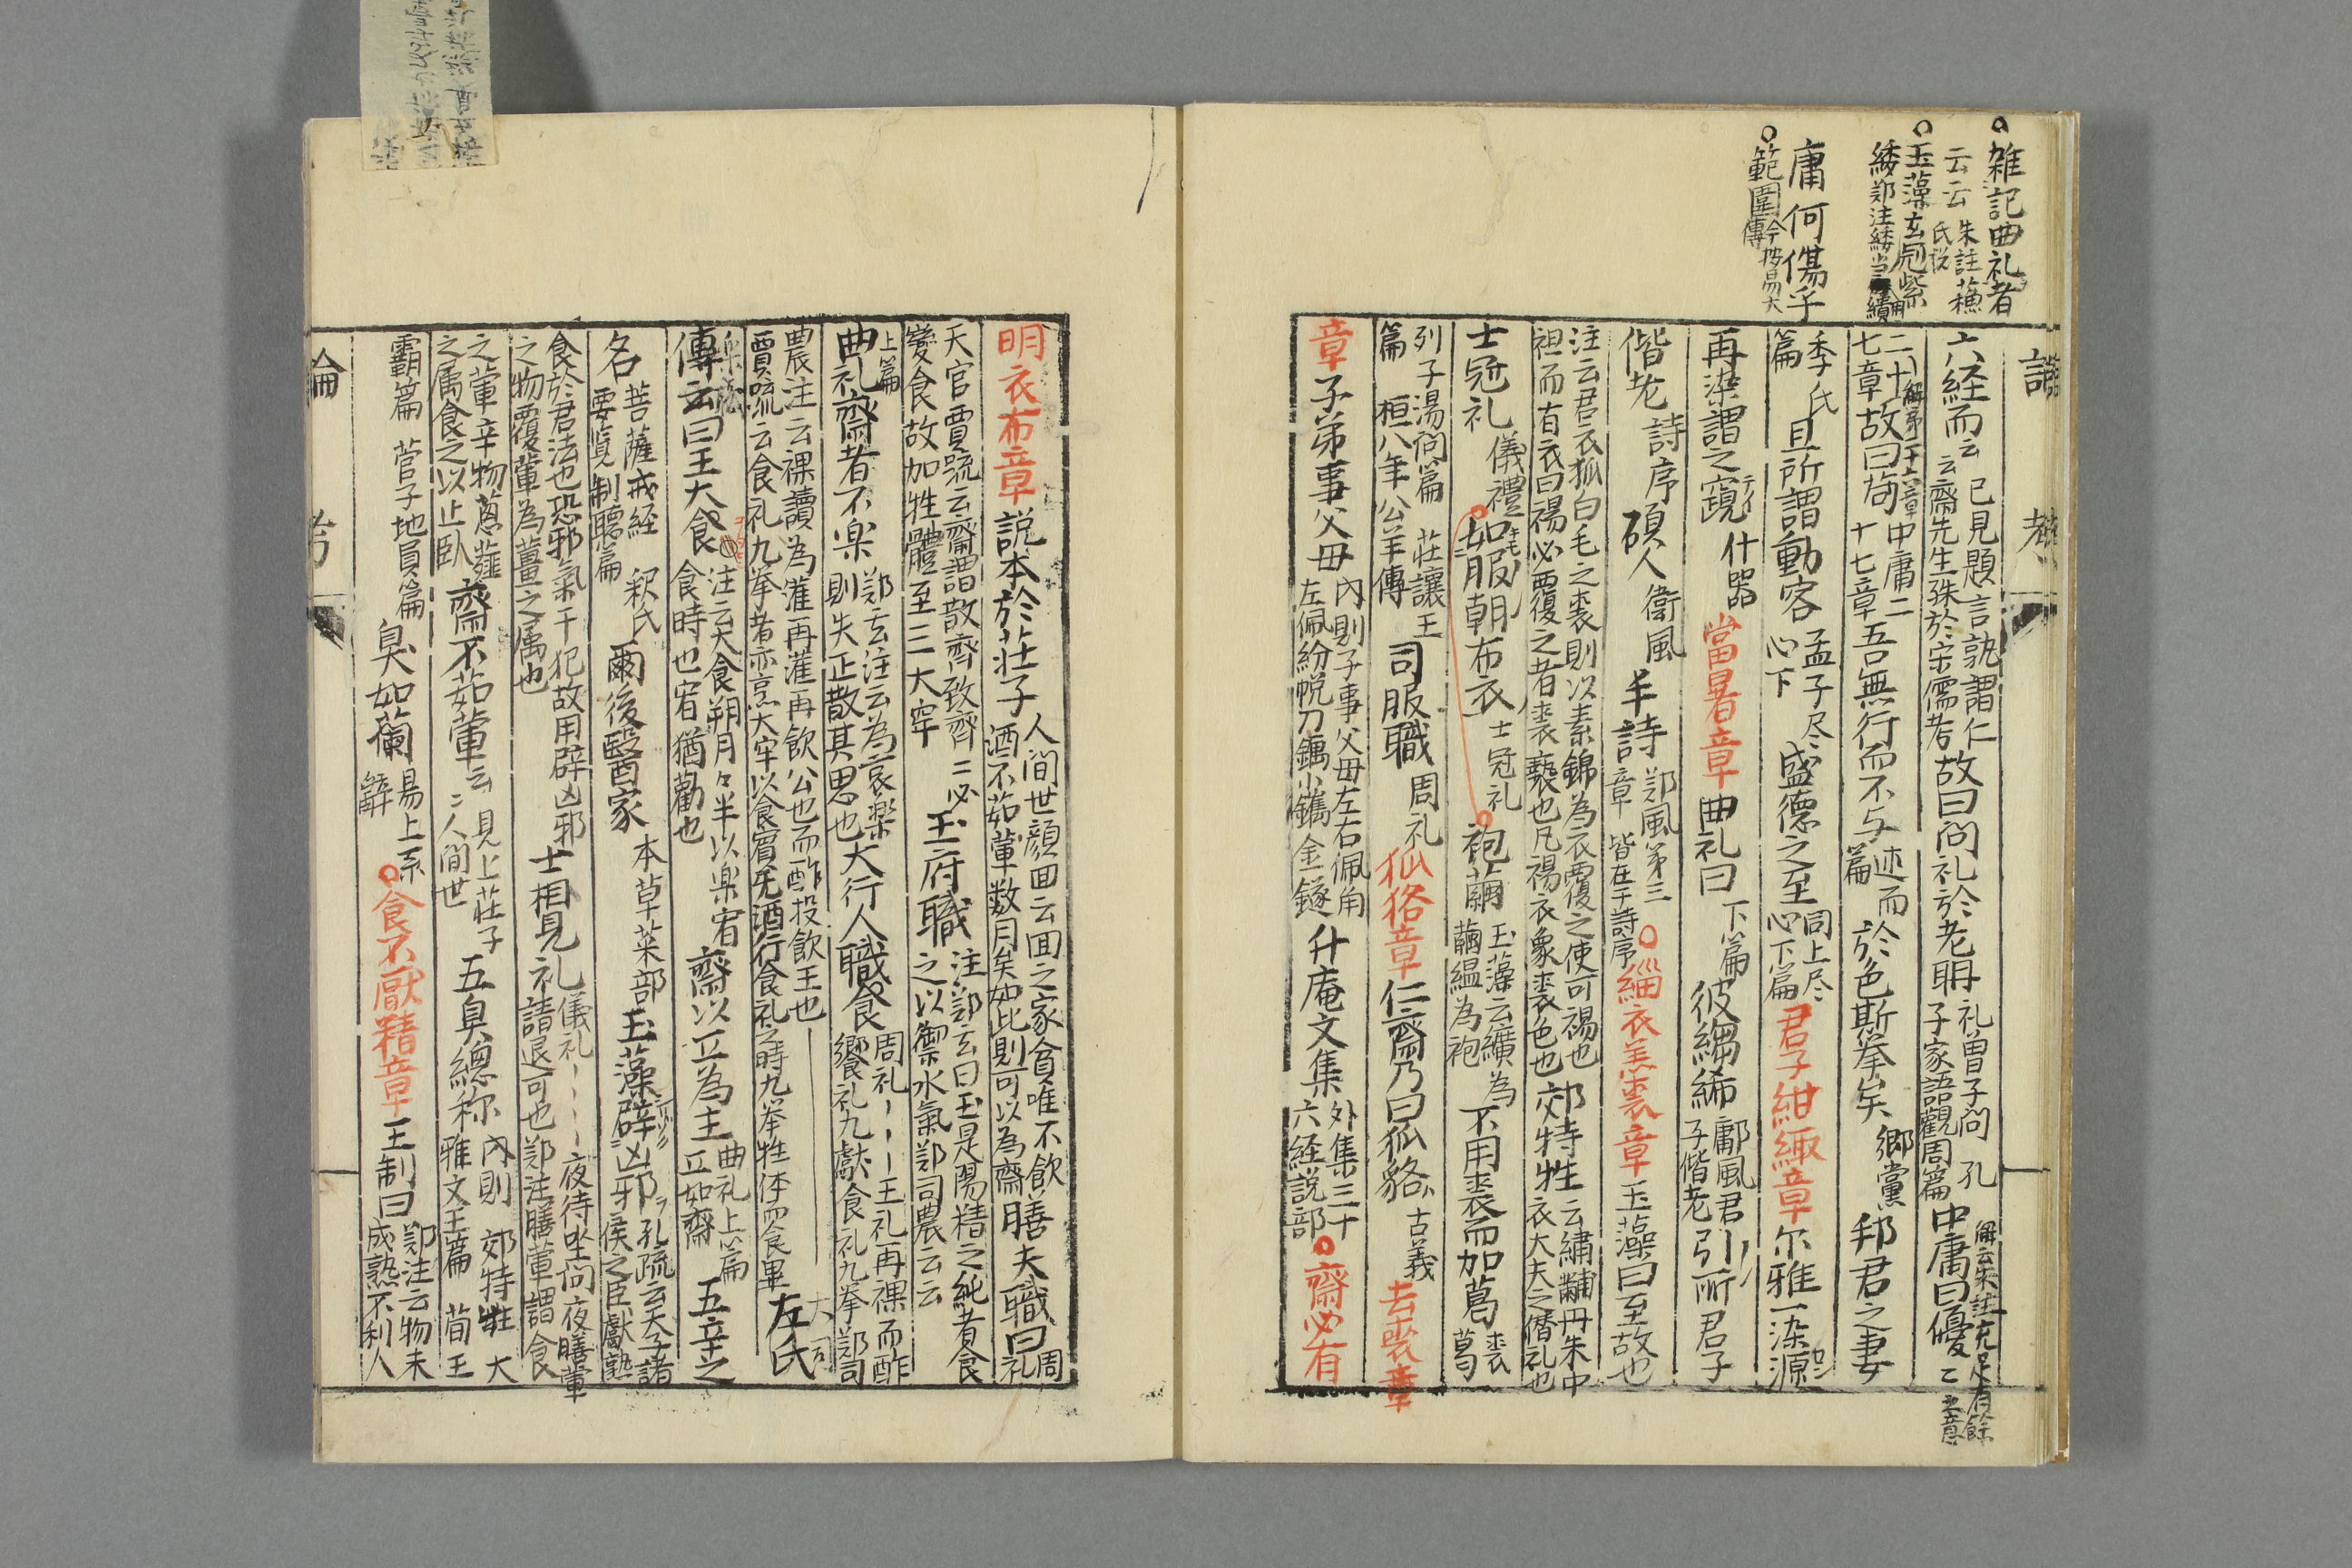 雑記曲礼者
云云 朱註蘓
氏説
玉藻玄冠紫
緌鄭注緌当用繢
庸何傷乎
範圍 今按易大
傳
六経而云 已見題言孰謂仁
云齋先生殊於宋儒者 故曰問礼於老聃 礼曽子問 孔
子家語觀周篇 中庸曰優〻 解云朱註充足有餘
之意
二十 解第十六章
七章 故曰苟 中庸二
十七章 吾無行而不与 述而
篇 於色斯挙矣 郷黨 邦君之妻
季氏
篇 且所謂動容 孟子尽
心下 盛德之至 同上尽
心下篇 君子紺緅章 尓雅一染源
再染謂之窺 什器 當暑章 曲礼曰 下篇 彼縐絺 鄘風君
子偕老 引所君子
偕老 詩序 碩人 衛風 手詩 鄭風第三
章 皆在于詩序 緇衣羔裘章 玉藻曰至故也
注云君衣狐白毛之裘則以素錦為衣覆之使可裼也
袒而有衣曰裼必覆之者裘褻也凡裼衣象裘色也 郊特牲 云繡黼丹朱中
衣大夫之僭礼也
士冠礼 儀禮 如服朝布衣 士冠礼 袍繭 玉藻云纊為
繭緼為袍 不用裘而加葛 裘
葛
列子湯問篇 荘讓王
篇 桓八年公羊傳 司服職 周礼 狐狢章 仁齋乃曰狐貉 古義 去裘章
章 子弟事父母 内則子事父母左右佩角
左佩紛帨刀礪小鑴金鐩 升庵文集 外集三十
六経説部 齋必有
明衣布章 説本於莊子 人間世顔回云回之家貧唯不飲
酒不茹葷数月矣如此則可以為齋 膳夫職曰 周
礼
天官賈疏云齋謂散齊致齊〻必
變食故加牲體至三大牢 玉府職 注鄭云曰玉是陽精之純者食
之以御水氣鄭司農云云
上篇
曲礼齋者不楽 鄭云注云為哀楽
則失正散其思也 大行人職食 周礼 王礼再祼而酢
饗礼九獻食礼九挙 鄭司
農注云祼讀為灌再灌再飲公也而酢投飲王也
賈疏云食礼九挙者亦烹大牢以食賓无酒行食礼之時九挙牲体而食畢 左氏 大司
楽疏
傳云曰王大食 注云大食朔月〻半以楽宥
食時也宥猶勸也 齋以立為主 曲礼上篇
立如齋 五辛之
名 菩薩戒経
要覧制聴篇 釈氏 爾後醫家 本草菜部 玉藻辟凶邪 孔疏云天子諸
侯之臣獻熟
食於君法也恐邪氣干犯故用辟凶邪
之物覆葷為薑之属也 士相見礼 儀礼 夜待坐問夜膳葷
請退可也鄭注膳葷謂食
之葷辛物葱薤
之属食之以止臥 齋不茹葷云 見上荘子
人間世 五臭總称 内則 郊特牲 大
雅文王篇 荀王
霸篇 菅子地員篇 臭如蘭 易上系
辭 食不厭精章 王制曰 鄭注云物未
成熟不利人
論
考